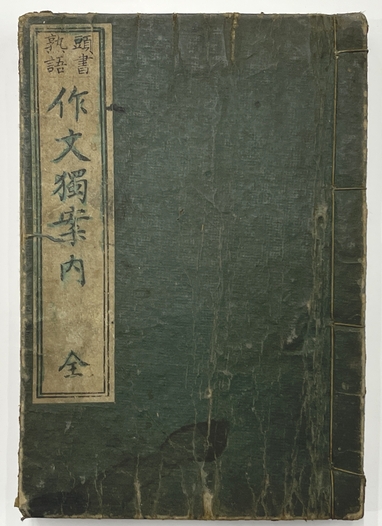 頭書
熟語
作文獨案内 全